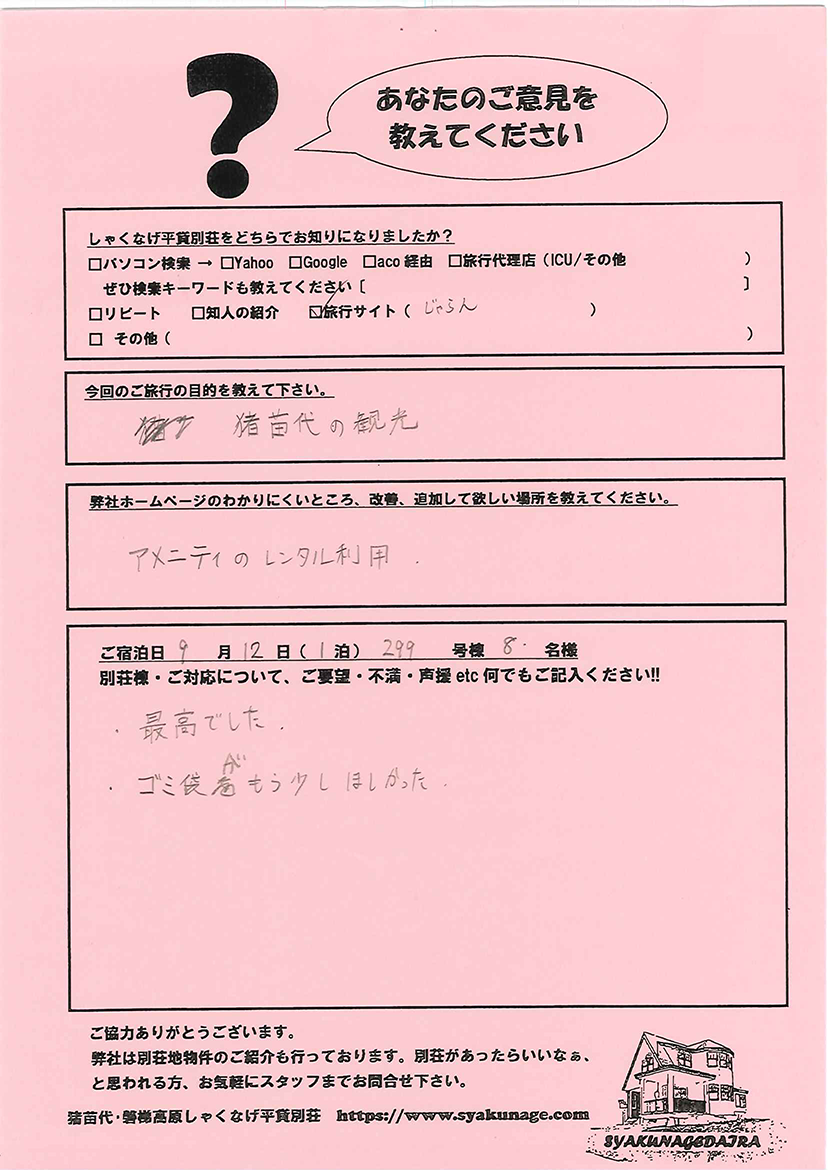 ?
あなたのご意見を
教えてください
しゃくなげ平貸別荘をどちらでお知りになりましたか?
□パソコン検索 → □Yahoo □Google □aco 経由 □旅行代理店（ICU/その他 ）
ぜひ検索キーワードも教えてください［ ］
□リピート □知人の紹介 ☑旅行サイト（ じゃらん ）
□ その他（ ）
今回のご旅行の目的を教えて下さい。
猪苗代の観光
弊社ホームページのわかりにくいところ、改善、追加して欲しい場所を教えてください。
アメニティのレンタル利用.
ご宿泊日 9 月 12 日（ 1 泊） 299 号棟 8 名様
別荘棟・ご対応について、ご要望・不満・声援 etc 何でもご記入ください!!
・最高でした.
・ゴミ袋がもう少しほしかった.
ご協力ありがとうございます。
弊社は別荘地物件のご紹介も行っております。別荘があったらいいなぁ、
と思われる方、お気軽にスタッフまでお問合せ下さい。
猪苗代・磐梯高原しゃくなげ平貸別荘 https://www.syakunage.com
SYAKUNAGEDAIRA